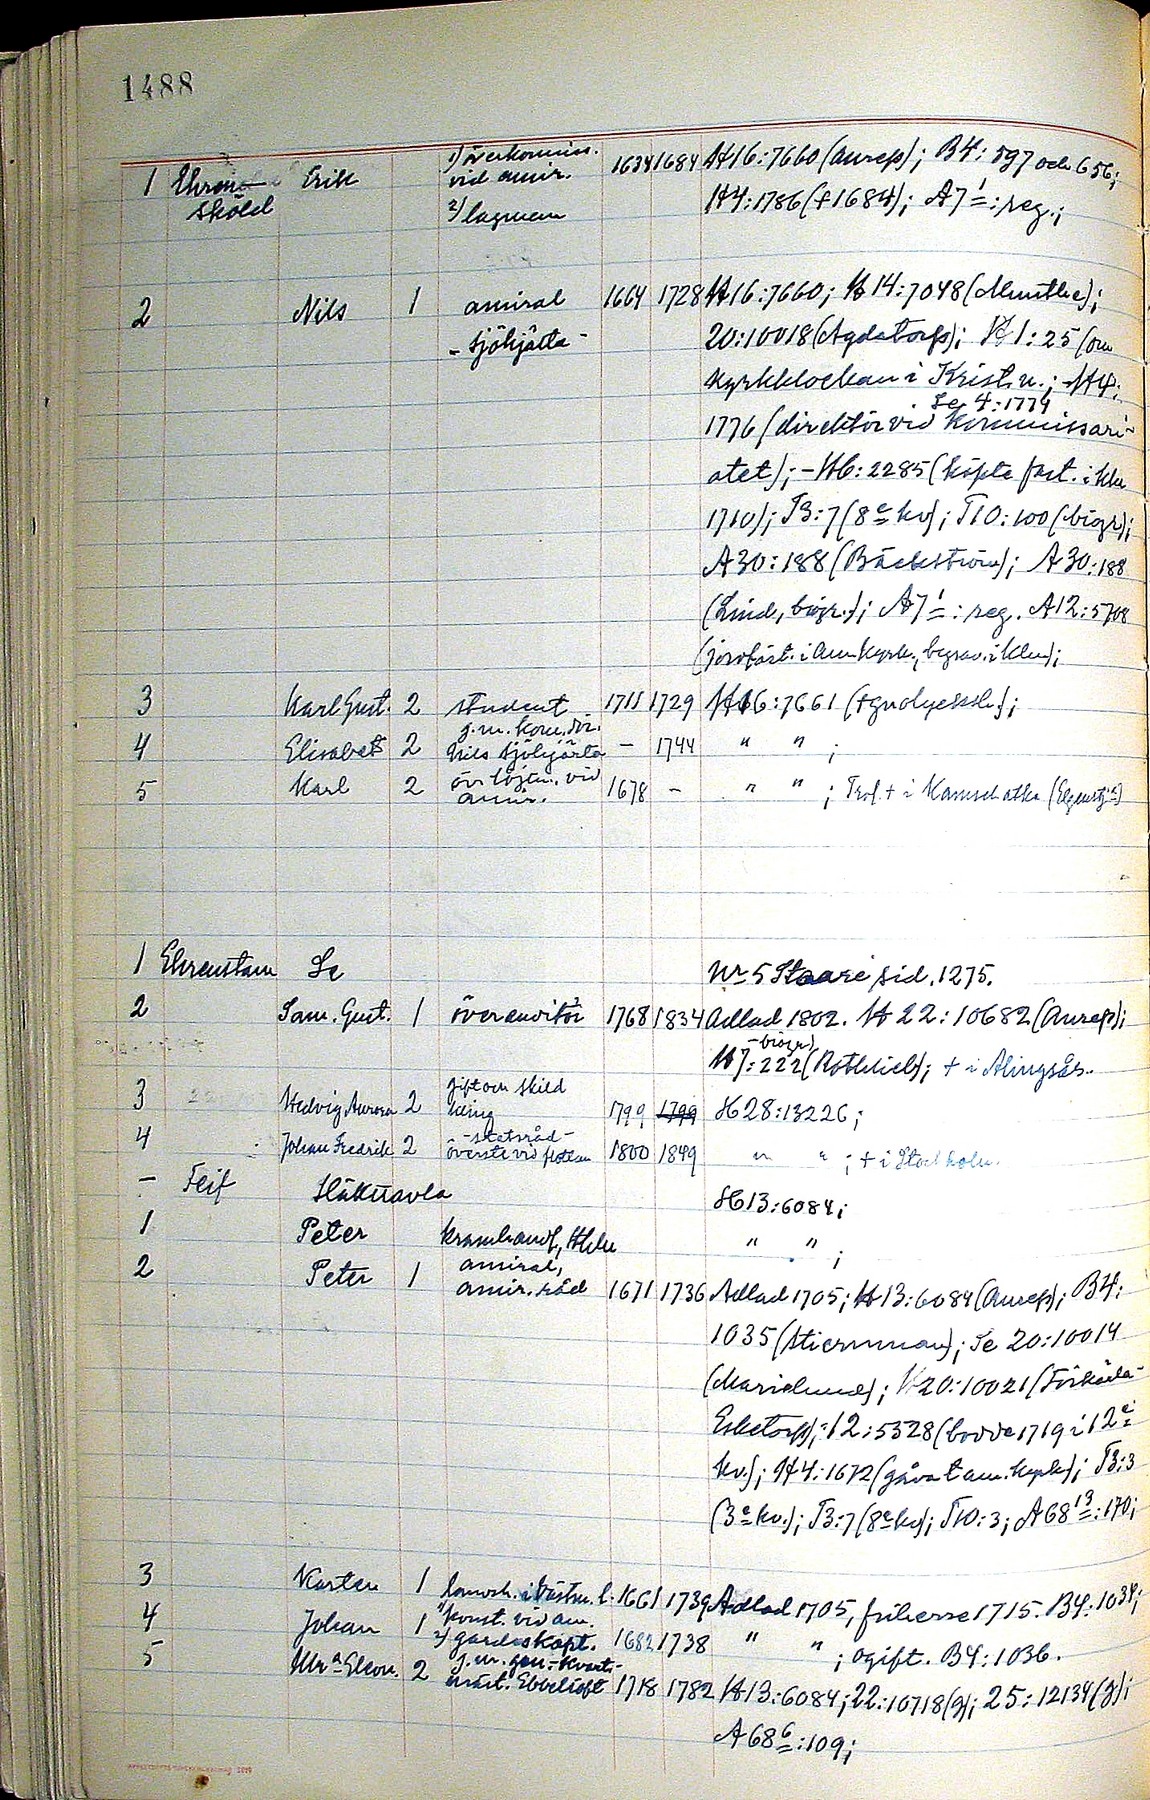 1488
1 Ehren- sköld Erik 1) överkommiss. vid amir. 2) lagman 1634 1684 H16:7660 (Anrep); B4: 597 och 656;
H4:1786 (+1684); A7 1: reg.;
2 Nils 1 amiral 1664 1728 H16:7660; H14:7048 (Munthe);
- Sjöhjälte - 20:10018 (Agdatorp); 1:25 (om
kyrkklockan i Kristn.; H4:
Se 4:1774
1776 (direktör vid kommissari-
atet); - H6:2285 (köpte fast. i Kkr
1710); T3:7 (8e kv); T10:100 (biogr);
A30:188 (Bäckström); A30:188
(Lind, biogr.); A7 1: reg. A12:5708
(jordfäst. i Am. kyrk., begrav. i Kkr);
3 Karl Gust. 2 student 1711 1729 H16:7661
4 Elisabet 2 g.m. kom.dir. Nils Sjöhjärta - 1744 " " ;
5 Karl 2 öv.löjtn. vid amir. 1678 - " " ; Trol. + i Kamschatka
1 Ehrenstam Se Nr 5 Staare sid. 1275.
2 Sam. Gust. 1 överauditör 1768 1834 Adlad 1802. H22:10682 (Anrep);
- biogr)
H7:222 (Rothlieb); + i Alingsås.
3 Hedvig Aurora 2 gift och skild Kling 1799 1799 H28:13226;
4 Johan Fredrik 2 - statsråd - överste vid flottan 1800 1849 " " ; + i Stockholm.
- Feif Släkttavla H13:6084;
1 Peter kramhandl., Sthlm " " ;
2 Peter 1 amiral, amir. råd 1671 1736 Adlad 1705; H13:6084 (Anrep); B4:
1035 (Stiernman); Se 20:10014
(Marielund); H20:10021 (Förkärla-
Esketorp); 12:5328 (bodde 1719 i 12e
kv.); H4:1672 (gåva t am. kyrk); T3:3
(3e kv.); T3:7 (8e kv); T10:3; A68 13:170;
3 Karsten 1 landsh. i Västm. l. 1661 1739 Adlad 1705, friherre 1715. B4:1034;
4 Johan 1 1) konst. vid am. 2) gardeskapt. 1682 1738 " " ; ogift. B4:1036.
5 Ulr a Eleon. 2 g.m. gen.-kvart.- mäst. Ebbe 1718 1782 H13:6084; 22:10718(g); 25:12134(g);
A68 6:109;